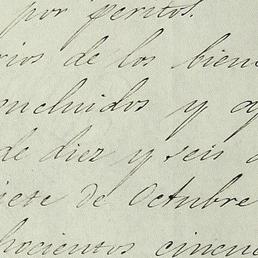 por peritos.
rios de los bien
oncluidos y a
de diez y seis
iete de Octubre
hocientos cincu